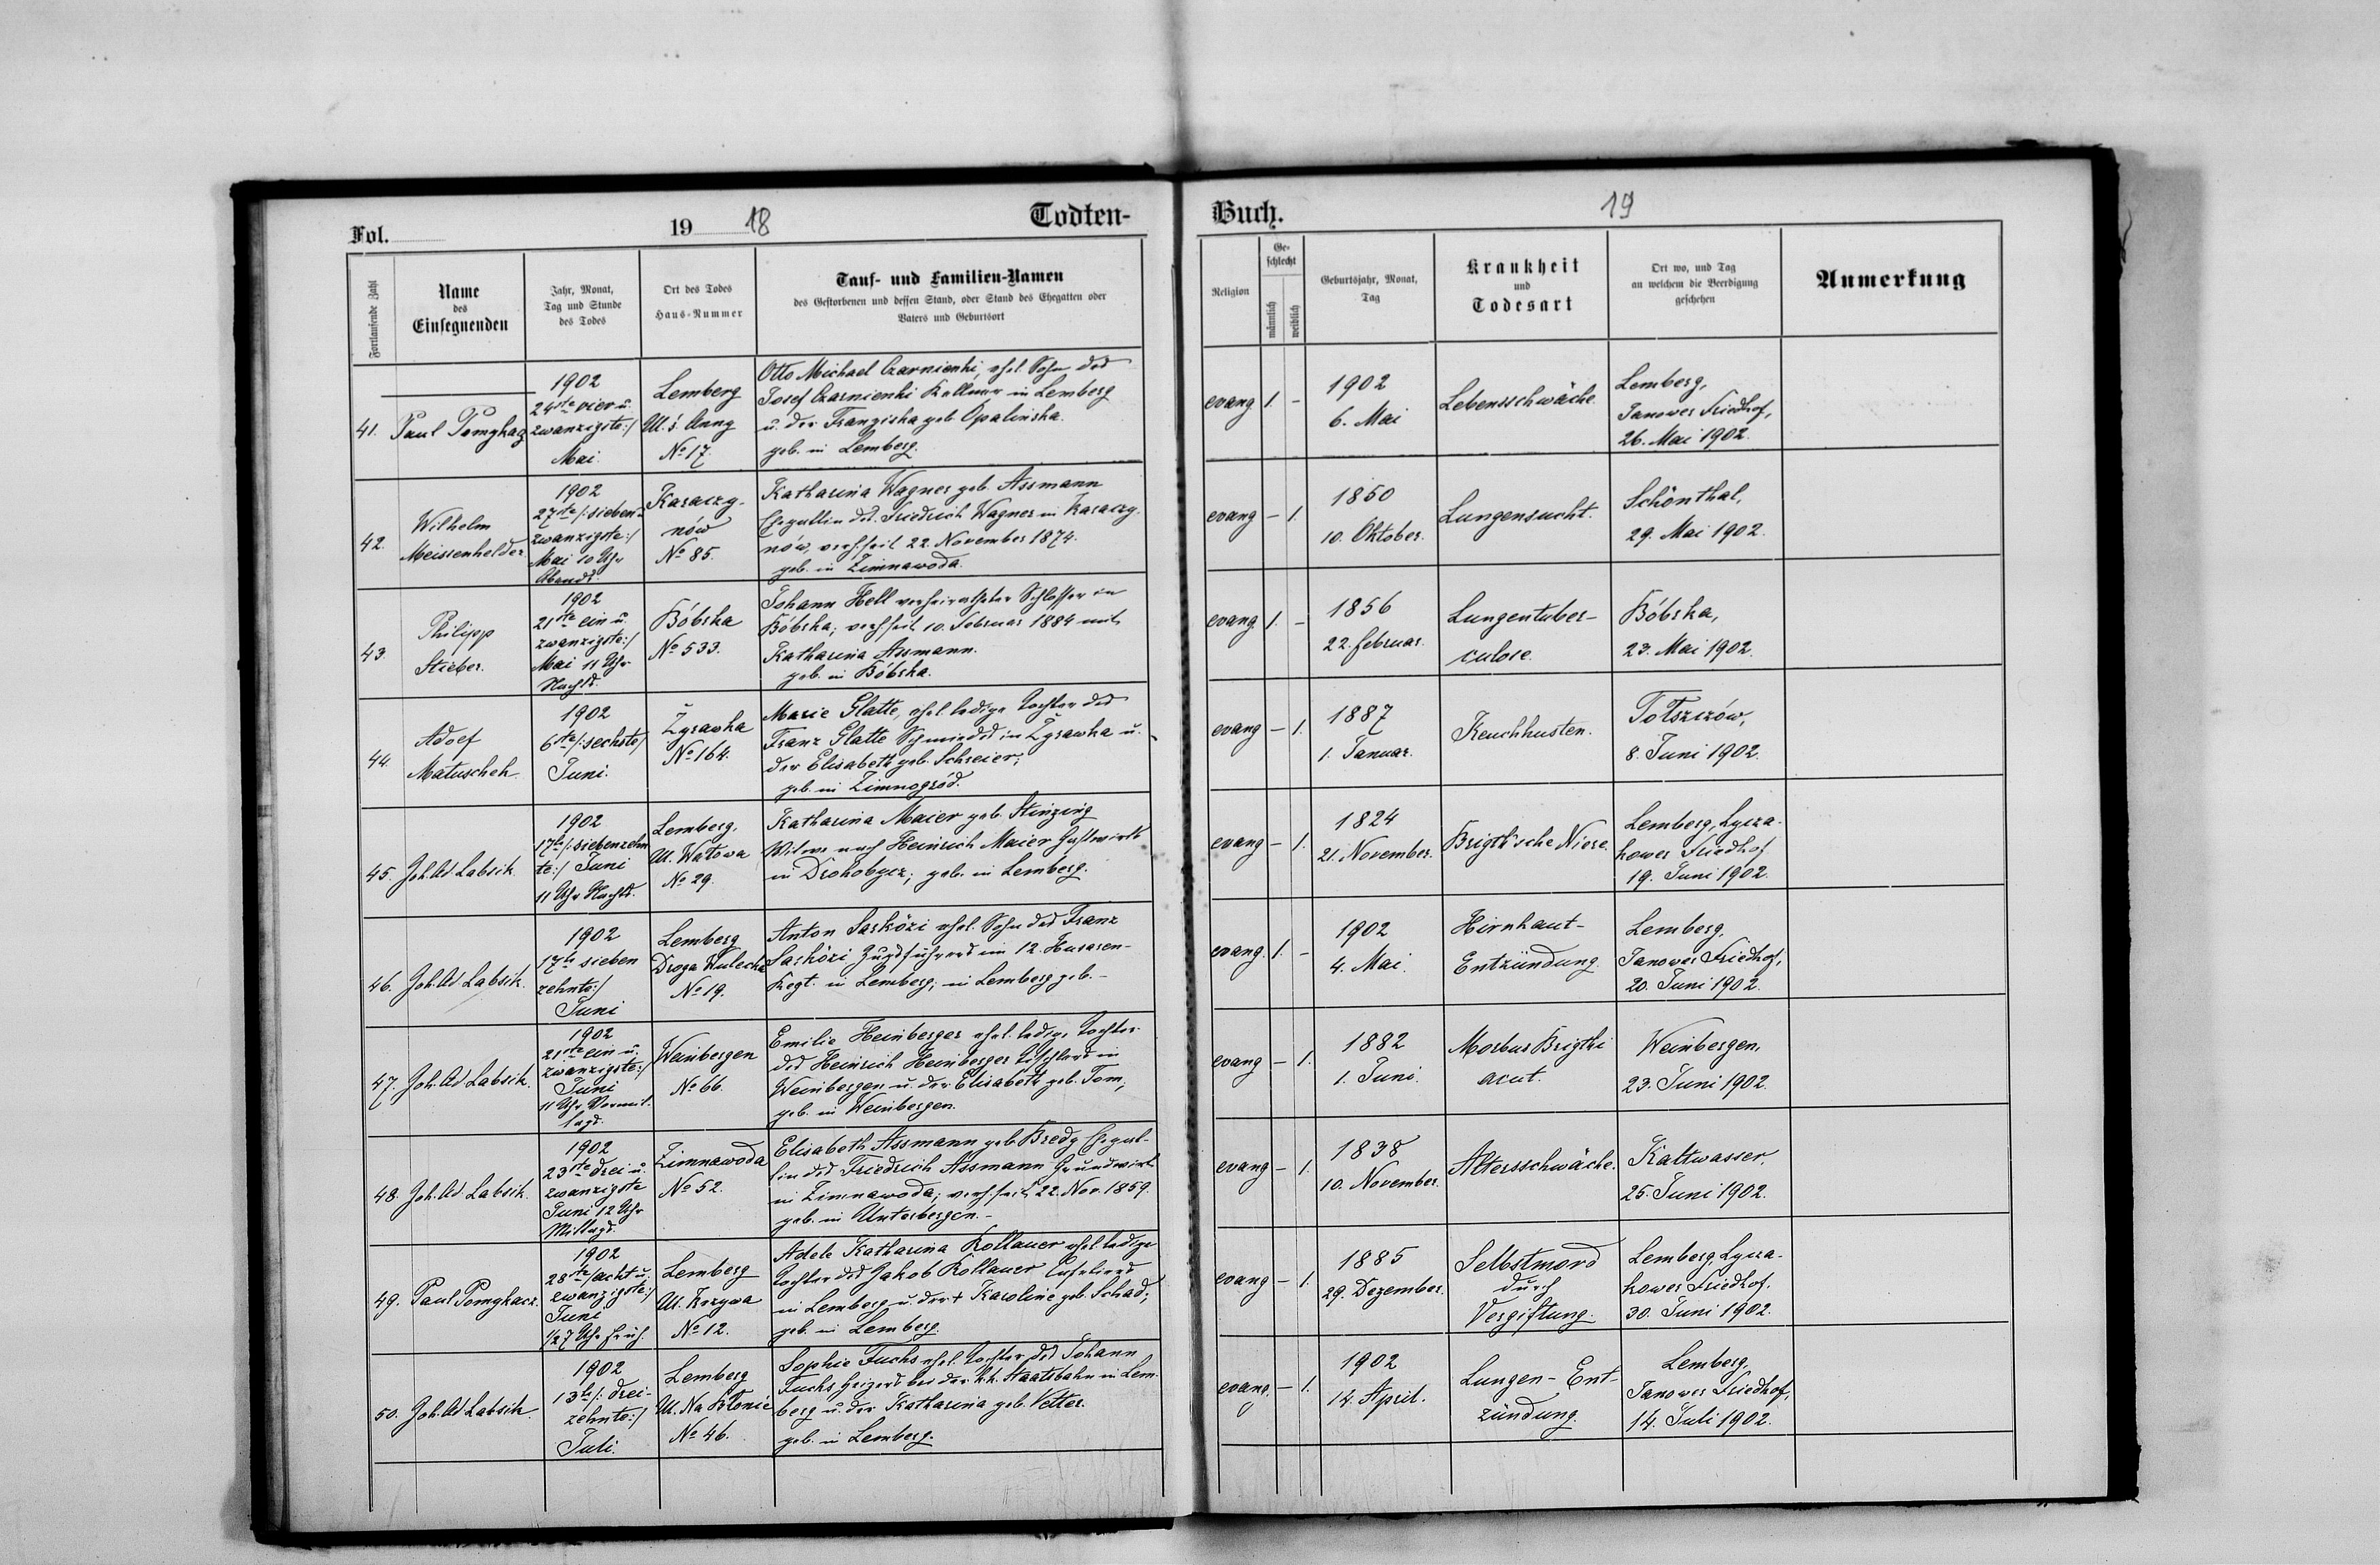 Fol. 19 18 Todten-
Fortlaufende Zahl
Name
des
Einsegnenden
Jahr, Monat,
Tag und Stunde
des Todes
Ort des Todes
Haus-Nummer
Tauf- und Familien-Namen
des Gestorbenen und dessen Stand, oder Stand des Ehegatten oder
Vaters und Geburtsort
41.
Paul Pomykacz
1902
24ste vier u.
zwanzigste:/
Mai.
Lemberg
Ul. ś. Anny
No 17.
Otto Michael Czarnienki, ehel. Sohn des
Josef Czarnienki Kellner in Lemberg
u. der Franziska geb. Opalinska.
geb. in Lemberg.
42.
Wilhelm
Meissenhelder
1902
27ste /:sieben-
zwanzigste:/
Mai 10 Uhr
Abends.
Karaczy-
nów
No 85.
Katharina Wagner geb. Assmann
Ehegattin des Friedrich Wagner in Karaczy-
nów, verh. seit 22. November 1874.
geb. in Zimnawoda.
43.
Philipp
Stieber.
1902
21ste ein u.
zwanzigste:/
Mai 11 Uhr
Nachts.
Bóbrka
No 533.
Johann Hell verheiratheter Schlosser in
Bóbrka; verh. seit 10. Februar 1884 mit
Katharina Assmann.
geb. in Bóbrka.
44.
Adolf
Matuschek
1902
6te /:sechste/
Juni.
Żyrawka
No 164.
Marie Glatte, ehel. ledige Tochter des
Franz Glatte Schmiedes in Żyrawka u.
der Elisabeth geb. Schreier;
geb. in Zimnogród.
45.
Joh. Ad. Labsik.
1902
17te /:siebenzehn
te:/ Juni
11 Uhr Nachts.
Lemberg.
Ul. Wałowa
No 29.
Katharina Maier geb. Stinzing
Witwe nach Heinrich Maier Gastwirth
in Drohobycz; geb. in Lemberg.
46.
Joh. Ad. Labsik.
1902
17te sieben
zehnte:/
Juni
Lemberg
Droga Kulecka
No 19.
Anton Sarközi ehel. Sohn des Franz
Sarközi Zugsführers im 12. Husaren-
Regt. in Lemberg; in Lemberg geb. -
47.
Joh. Ad. Labsik.
1902
21ste ein u.
zwanzigste:/
Juni
11 Uhr Vormit-
tags.
Weinbergen
No 66.
Emilie Heinberger ehel. ledige Tochter
des Heinrich Heinberger Tischlers in
Weinbergen u. der Elisabeth geb. Tom;
geb. in Weinbergen.
48.
Joh. Ad. Labsik.
1902
23ste drei u.
zwanzigste
Juni 12 Uhr
Mittags.
Zimnawoda
No 52.
Elisabeth Assmann geb. Bredy Ehegat-
tin des Friedrich Assmann Grundwirth
in Zimnawoda; verh. seit 22. Nov. 1859.
geb. in Unterbergen. -
49.
Paul Pomykacz.
1902
28ste /acht u.
zwanzigste:/
Juni
1/27 Uhr früh.
Lemberg
Ul. Krzywa
No 12.
Adele Katharina Kollauer ehel. ledige
Tochter des Jakob Kollauer
in Lemberg u. der + Karoline geb. Schad;
geb. in Lemberg.
50.
Joh. Ad. Labsik.
1902
13te /: drei-
zehnte:/
Juli.
Lemberg
Ul. Na Błonie
No 46.
Sophie Fuchs ehel. Tochter des Johann
Fuchs Heizers bei der k.k. Staatsbahn in Lem-
berg u. der Katharina geb. Vetter.
geb. in Lemberg.
Buch. 19
Religion
Ge-
schlecht
männlich
weiblich
Geburtsjahr, Monat,
Tag
Krankheit
und
Todesart
Ort wo, und Tag
an welchem die Beerdigung
geschehen
Anmerkung
evang 1. -
1902
6. Mai
Lebensschwäche.
Lemberg,
Janower Friedhof,
26. Mai 1902.
evang - 1.
1850
10. Oktober.
Lungensucht.
Schönthal,
29. Mai 1902.
evang. 1. -
1856
22. Februar.
Lungentuber-
culose.
Bóbrka,
23. Mai 1902.
evang - 1.
1887
1. Januar.
Keuchhusten.
Tołszczów,
8. Juni 1902.
evang - 1.
1824
21. November.
Brigth'sche Niere.
Lemberg, Lycza-
kower Friedhof
19. Juni 1902.
evang. 1. -
1902
4. Mai.
Hirnhaut-
Entzündung.
Lemberg.
Janower Friedhof,
20. Juni 1902.
evang - 1.
1882
1. Juni.
Morbus Brigthi
acut.
Weinbergen,
23. Juni 1902.
evang - 1.
1838
10. November.
Altersschwäche.
Kaltwasser,
25. Juni 1902.
evang - 1.
1885
29. Dezember.
Selbstmord
durch
Vergiftung.
Lemberg, Lycza-
kower Friedhof.
30. Juni 1902.
evang. - 1.
1902
14. April.
Lungen-Ent-
zündung.
Lemberg,
Janower Friedhof,
14. Juli 1902.